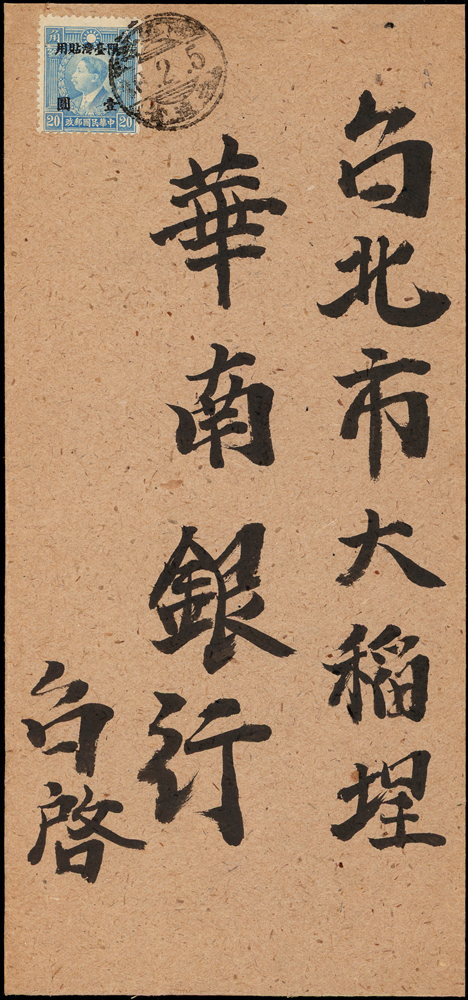 台北市大稻埕
華南銀行
台啓
角
限臺灣貼用
壹圓
20 中華民國郵政 20
2.5